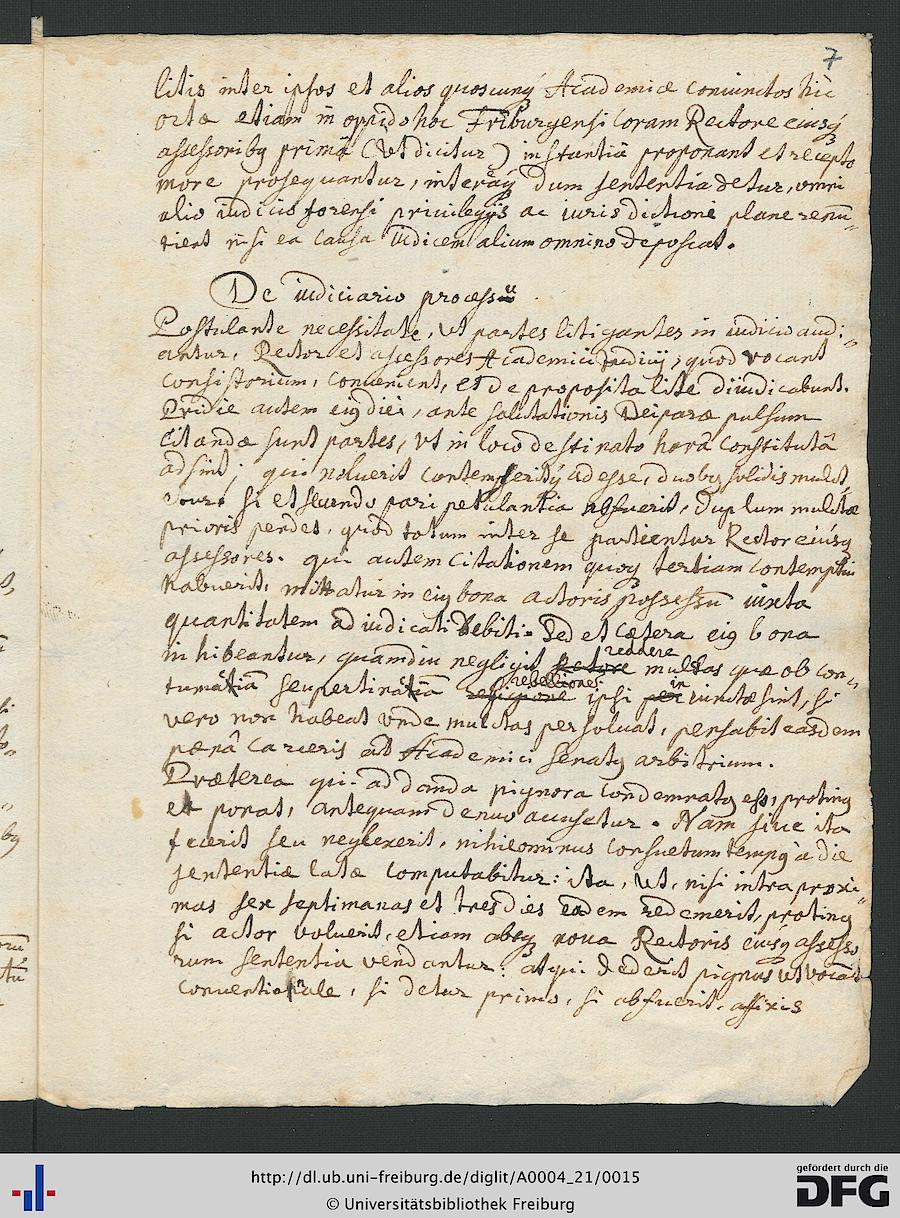 7
litis inter ipsos et alios quoscunq Academiæ coniunctos hic
ortæ etiam in oppido hoc Friburgensi Coram Rectore eiusq
assessoribq primâ (vt dicitur) instantiâ proponant et recepto
more prosequantur, interâq dum sententia detur, omni
alio iudicis forensi privilegijs ac iuris dictioni plane renū„
tient nisi ea causa iudicem alium omnino deposcat.
De iudiciario processu
Postulante necessitate, vt partes litigantes in iudicio audi„
antur, Rector et assessores Academici Judicij, quod vocant
Consistorium, Convenient, et de proposita lite diiudicabunt.
Pridie autem eiq diei, ante salutationis Deiparæ pulsum
Citandæ sunt partes, vt in loco destinato horâ Constitutâ
adsint; qui noluerit Contempseritq adesse, duobq solidis mulct„
 si et secundo pari petulantia abfuerit, duplum mulctæ
prioris pendet, quod totum inter se partientur Rector eiusq
assessores. qui autem Citationem quoq tertiam contemptui
habuerit, mittatur in eiq bona actoris possessū iuxta
quantitatem adiudicati debiti. Sed et Cætera eiq bona
inhibeantur, quamdiu negligit reddere multas quæ ob con„
tumâtiâ seu pertinâtiâ rebellionei ipsi in iunctæ sint, si
vero non habeat vnde mulctas persoluat, pensabit easdem
pœnâ Carceris ad Academici senatq arbitrium.
Præterea qui ad danda pignora Condemnatq est, protinq
et ponat, antequam denuo accusetur. Nam siue ita
fecerit seu neglexerit, nihilominus Consuetum tempq à die
sententiæ latæ Computabitur: ita, vt, nisi intra proxi„
mas sex septimanas et tres dies eadem redemerit, protinq
si actor voluerit, etiam absq noua Rectoris eiusq assesso
rum sententia vendantur: atqui dederit pignus vt vocant
Conventionale, si detur primo, si abfuerit, affixis
http://dl.ub.uni-freiburg.de/diglit/A0004_21/0015
© Universitätsbibliothek Freiburg
gefördert durch die
DFG